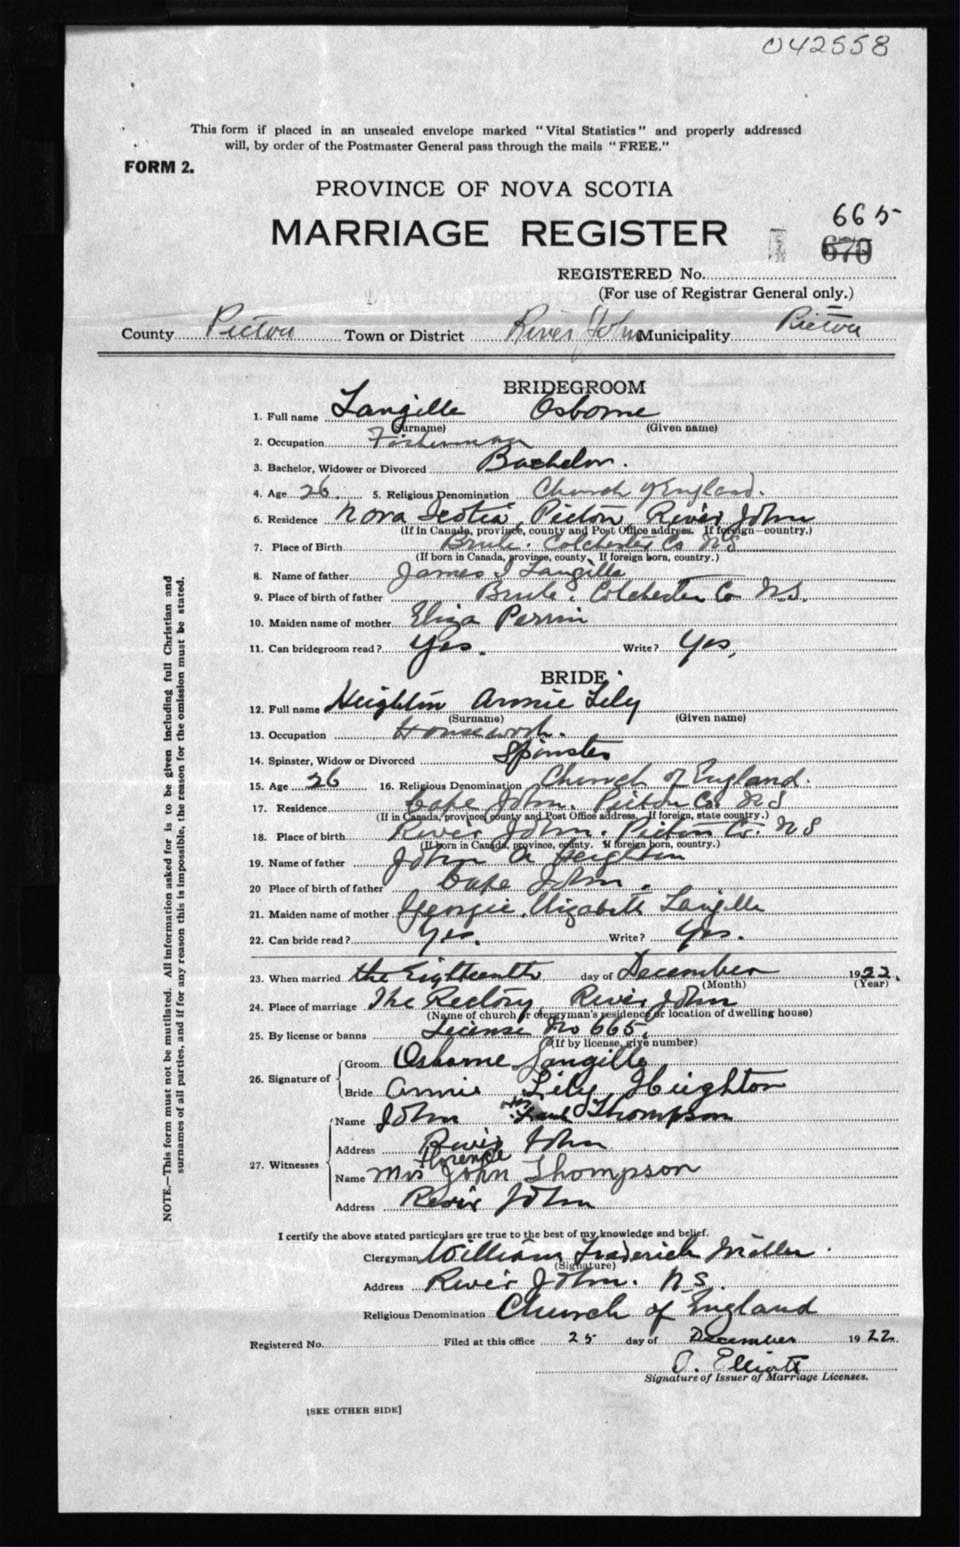 042558
This form if placed in an unsealed envelope marked "Vital Statistics" and properly addressed
will, by order of the Postmaster General pass through the mails "FREE."
FORM 2.
PROVINCE OF NOVA SCOTIA
MARRIAGE REGISTER
665
670
REGISTERED No.
(For use of Registrar General only.)
County Pictou Town or District River John Municipality Pictou
BRIDEGROOM
1. Full name Langille Osborne
(Surname) (Given name)
2. Occupation Fisherman
3. Bachelor, Widower or Divorced Bachelor.
4. Age 26 5. Religious Denomination Church of England.
6. Residence Nova Scotia, Pictou River John
(If in Canada, province, county and Post Office address. If foreign—country.)
7. Place of Birth Brule. Colchester Co NS
(If born in Canada, province, county. If foreign born, country.)
8. Name of father James I Langille
9. Place of birth of father Brule. Colchester Co N.S.
10. Maiden name of mother Eliza Perrin
11. Can bridegroom read? Yes. Write? Yes,
BRIDE
12. Full name Heighton Annie Lily
(Surname) (Given name)
13. Occupation Housework.
14. Spinster, Widow or Divorced Spinster
15. Age 26 16. Religious Denomination Church of England.
17. Residence Cape John. Pictou Co. NS
(If in Canada, province, county and Post Office address. If foreign, state country.)
18. Place of birth River John. Pictou Co. NS
(If born in Canada, province, county. If foreign born, country.)
19. Name of father John A Heighton
20 Place of birth of father Cape John.
21. Maiden name of mother Georgie Elizabeth Langille
22. Can bride read? Yes. Write? Yes.
23. When married the Eighteenth day of December 1922.
(Month) (Year)
24. Place of marriage The Rectory River John
(Name of church or clergyman's residence or location of dwelling house)
25. By license or banns License No 665.
(If by license, give number)
26. Signature of
Groom Osborne Langille
Bride Annie Lily Heighton
27. Witnesses
Name John Thompson
Address River John
Florence
Name Mrs John Thompson
Address River John
I certify the above stated particulars are true to the best of my knowledge and belief.
Clergyman William Frederick Miller.
(Signature)
Address River John. N.S.
Religious Denomination Church of England
Registered No. Filed at this office 25 day of December 1922.
Elliott
Signature of Issuer of Marriage Licenses.
[SEE OTHER SIDE]
NOTE.—This form must not be mutilated. All information asked for is to be given including full Christian and
surnames of all parties, and if for any reason this is impossible, the reason for the omission must be stated.